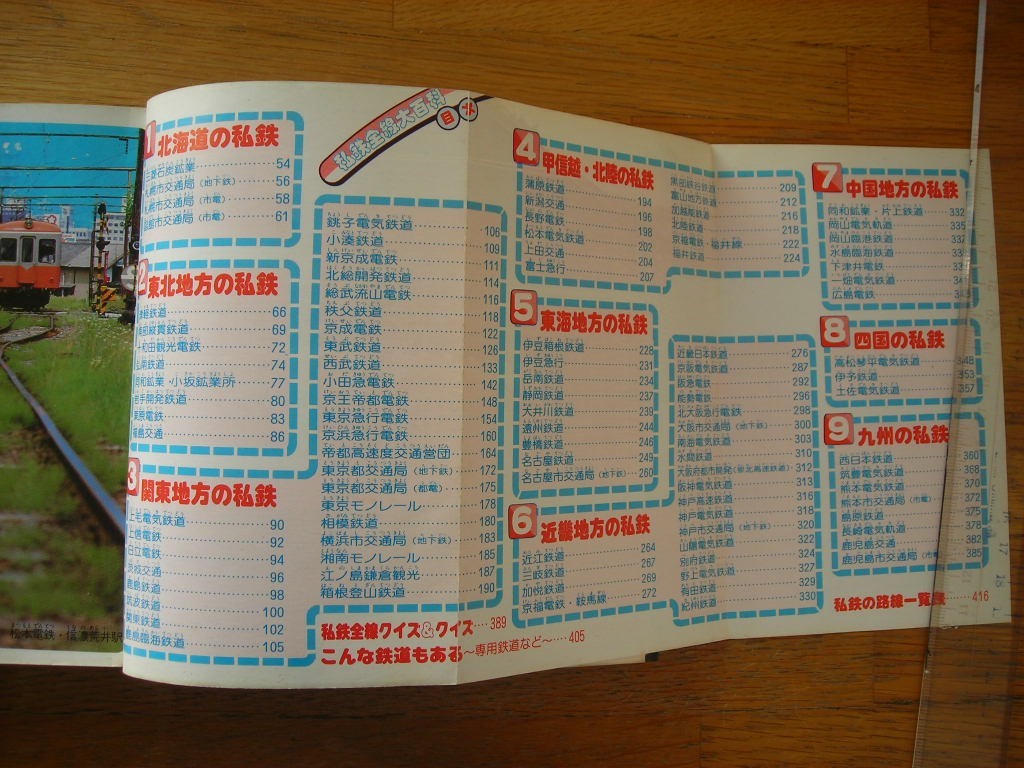 私鉄全線大百科
目次
1 北海道の私鉄
石炭鉱業 54
市交通局(地下鉄) 56
市交通局(市電) 58
市交通局(市電) 61
2 東北地方の私鉄
軽鉄道 66
縦貫鉄道 69
和田観光電鉄 72
南鉄道 74
同和鉱業・小坂鉱業所 77
岩手開発鉄道 80
栗原電鉄 83
福島交通 86
3 関東地方の私鉄
上毛電気鉄道 90
上信電鉄 92
日立電鉄 94
茨城交通 96
鹿島鉄道 98
筑波鉄道 100
関東鉄道 102
鹿島臨海鉄道 105
銚子電気鉄道 106
小湊鉄道 109
新京成電鉄 111
北総開発鉄道 114
総武流山電鉄 116
秩父鉄道 118
京成電鉄 122
東武鉄道 126
西武鉄道 133
小田急電鉄 142
京王帝都電鉄 148
東京急行電鉄 154
京浜急行電鉄 160
帝都高速度交通営団 164
東京都交通局(地下鉄) 172
東京都交通局(都電) 175
東京モノレール 178
相模鉄道 180
横浜市交通局(地下鉄) 183
湘南モノレール 185
江ノ島鎌倉観光 187
箱根登山鉄道 190
私鉄全線クイズ&クイズ 389
こんな鉄道もある〜専用鉄道など〜 405
4 甲信越・北陸の私鉄
蒲原鉄道 194
新潟交通 196
長野電鉄 198
松本電気鉄道 202
上田交通 204
富士急行 207
黒部峡谷鉄道 209
富山地方鉄道 212
加越能鉄道 216
北陸鉄道 218
京福電鉄・福井線 222
福井鉄道 224
5 東海地方の私鉄
伊豆箱根鉄道 228
伊豆急行 231
岳南鉄道 234
静岡鉄道 237
大井川鉄道 239
遠州鉄道 244
豊橋鉄道 246
名古屋鉄道 249
名古屋市交通局(地下鉄) 260
6 近畿地方の私鉄
近江鉄道 264
三岐鉄道 267
加悦鉄道 269
京福電鉄・鞍馬線 272
近畿日本鉄道 276
京阪電気鉄道 287
阪急電鉄 292
能勢電鉄 296
北大阪急行電鉄 298
大阪市交通局(地下鉄) 300
南海電気鉄道 303
水間鉄道 310
大阪府都市開発(泉北高速鉄道) 312
阪神電気鉄道 313
神戸高速鉄道 316
神戸電気鉄道 318
神戸市交通局(地下鉄) 320
山陽電気鉄道 322
別府鉄道 324
野上電気鉄道 327
有田鉄道 329
紀州鉄道 330
7 中国地方の私鉄
同和鉱業・片上鉄道 332
岡山電気軌道 335
岡山臨港鉄道 337
水島臨海鉄道
下津井電鉄
一畑電気鉄道
広島電鉄
8 四国の私鉄
高松琴平電気鉄道 348
伊予鉄道 353
土佐電気鉄道 357
9 九州の私鉄
西日本鉄道 360
筑豊電気鉄道 368
熊本電気鉄道 370
熊本市交通局(市電) 372
島原鉄道 375
長崎電気軌道 378
鹿児島交通 382
鹿児島市交通局(市電) 385
私鉄の路線一覧表 416
松本電鉄・信濃荒井駅